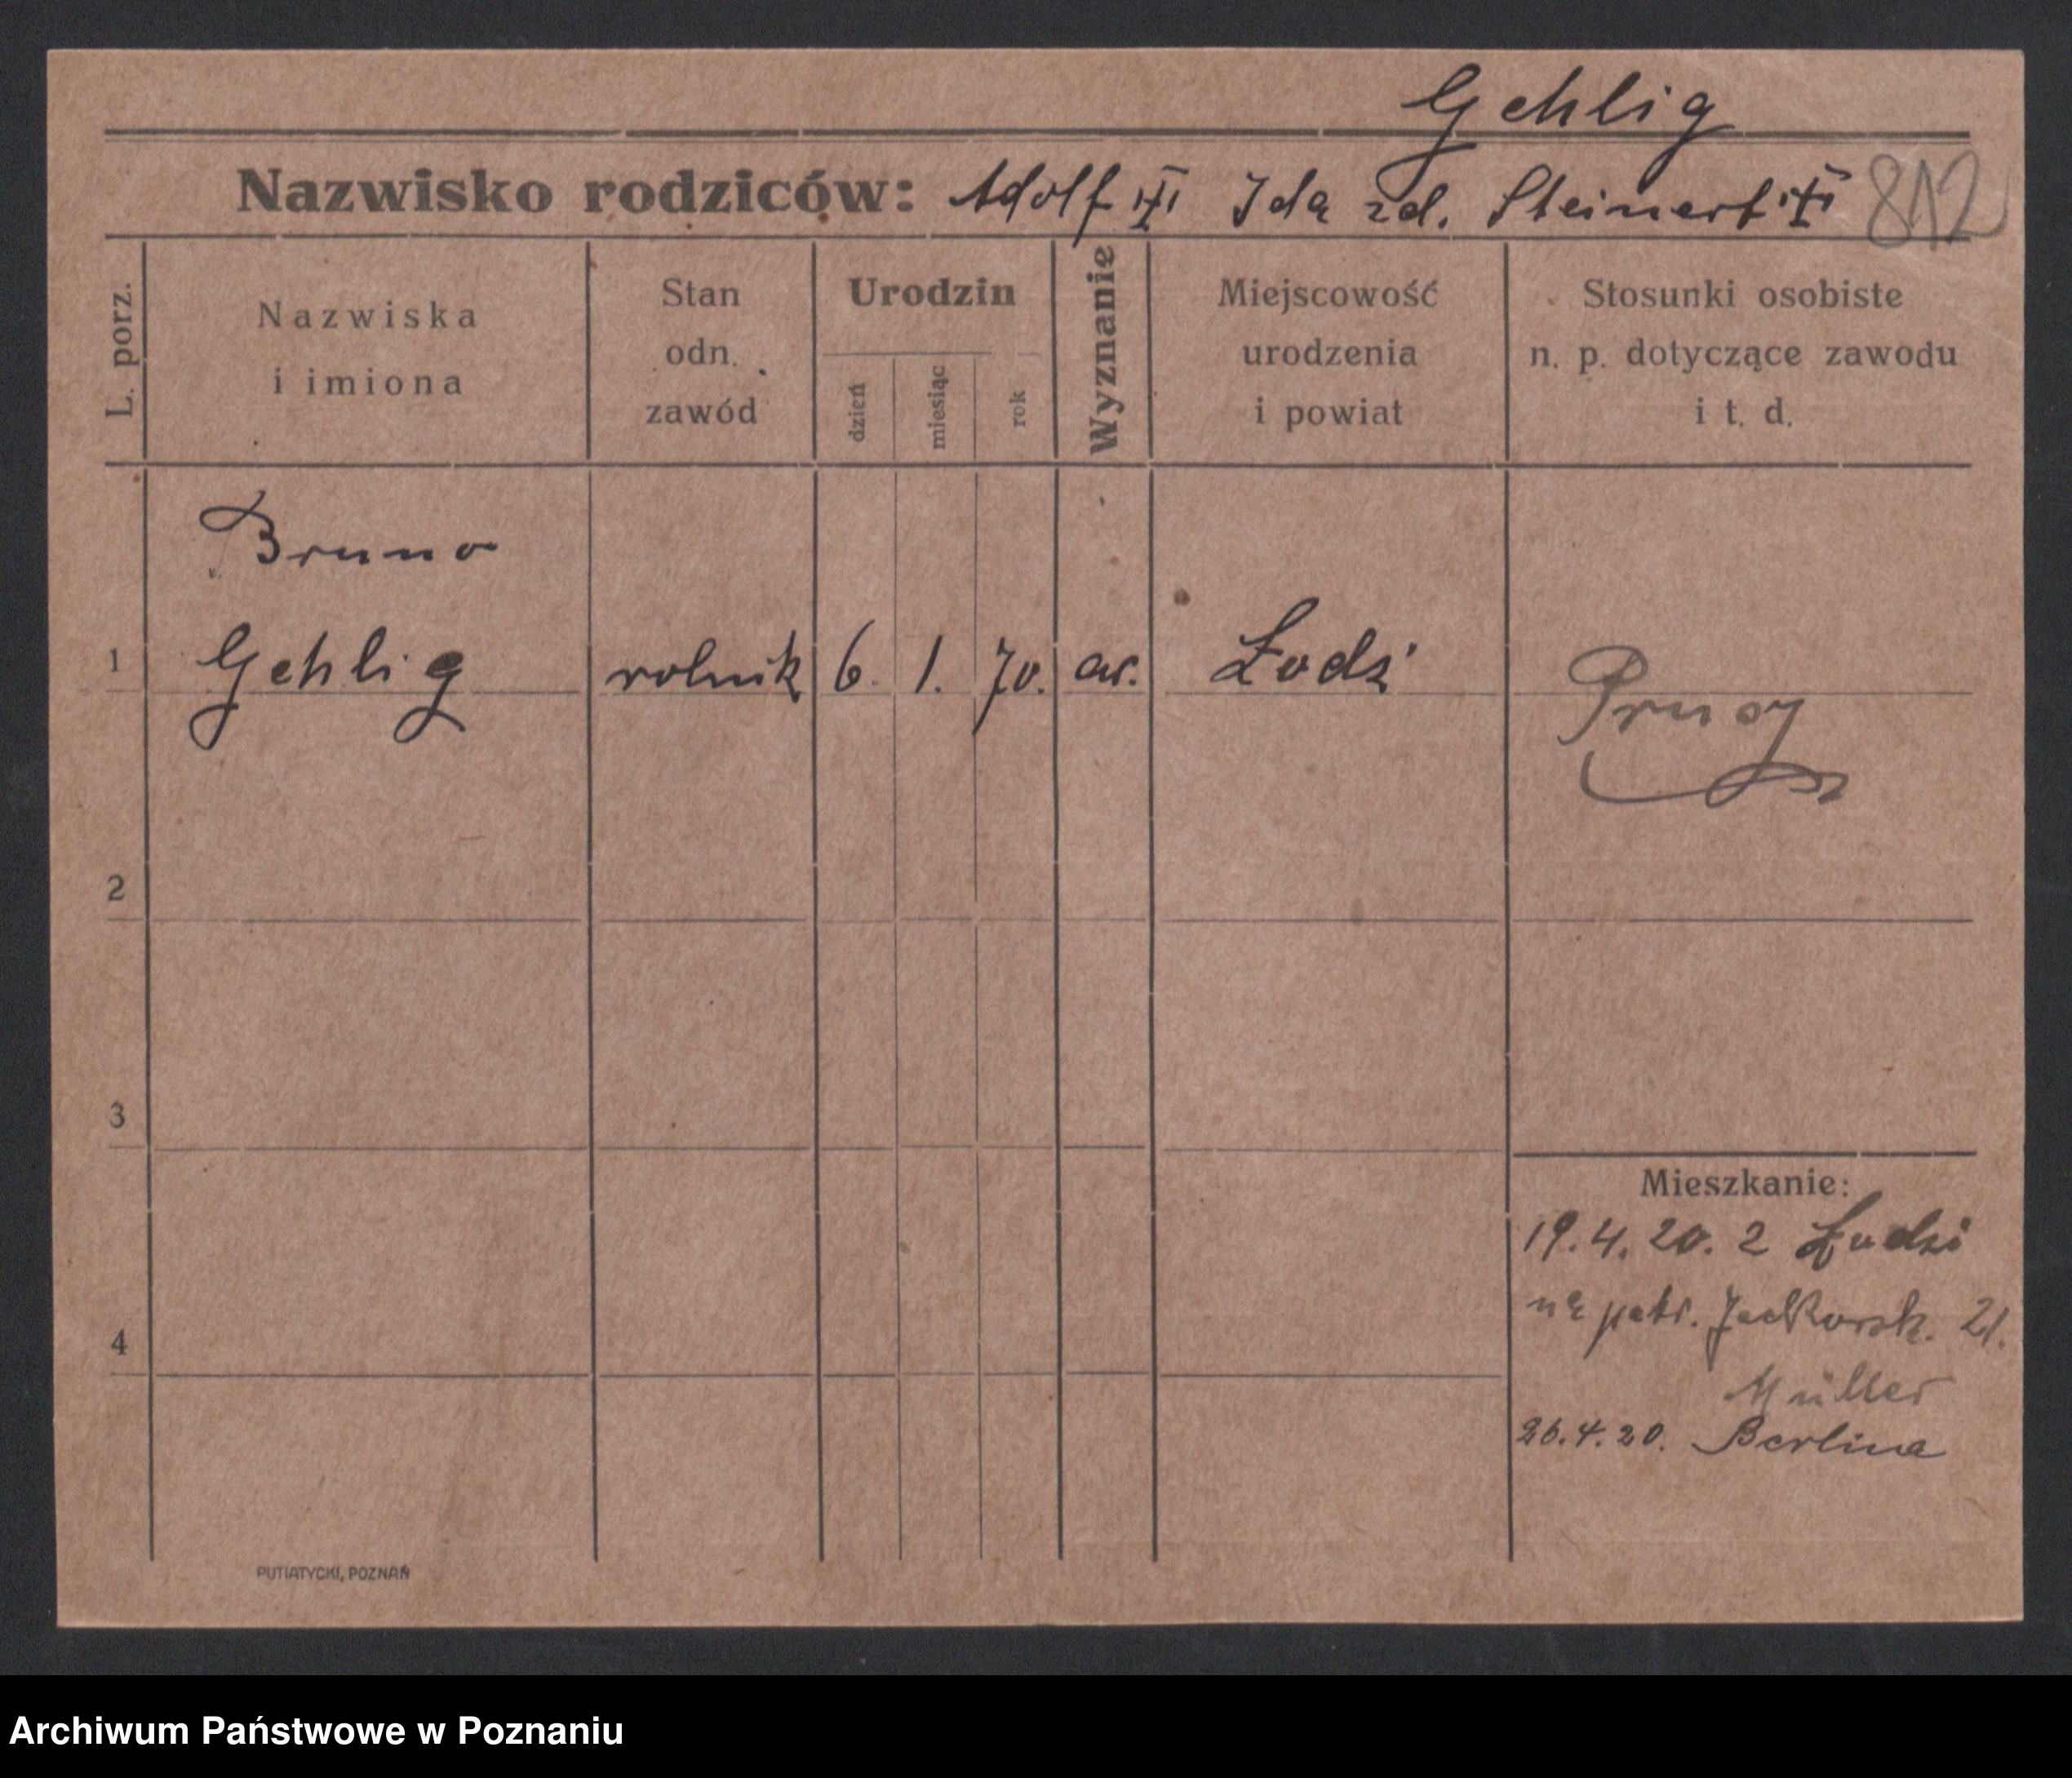 Gehlig
Nazwisko rodziców: Adolf Ida zd. Steinert 812
L. porz.
Nazwiska
i imiona
Stan
odn.
zawód
Urodzin
dzień
miesiąc
rok
Wyznanie
Miejscowość
urodzenia
i powiat
Stosunki osobiste
n. p. dotyczące zawodu
i t. d.
Bruno
1 Gehlig rolnik 6. 1. 70. ew. Łodź
Prusy
2
3
4
Mieszkanie:
19.4.20. z Łodzi
21.
Müller
26.4.20. Berlina
PUTIATYCKI, POZNAŃ
Archiwum Państwowe w Poznaniu